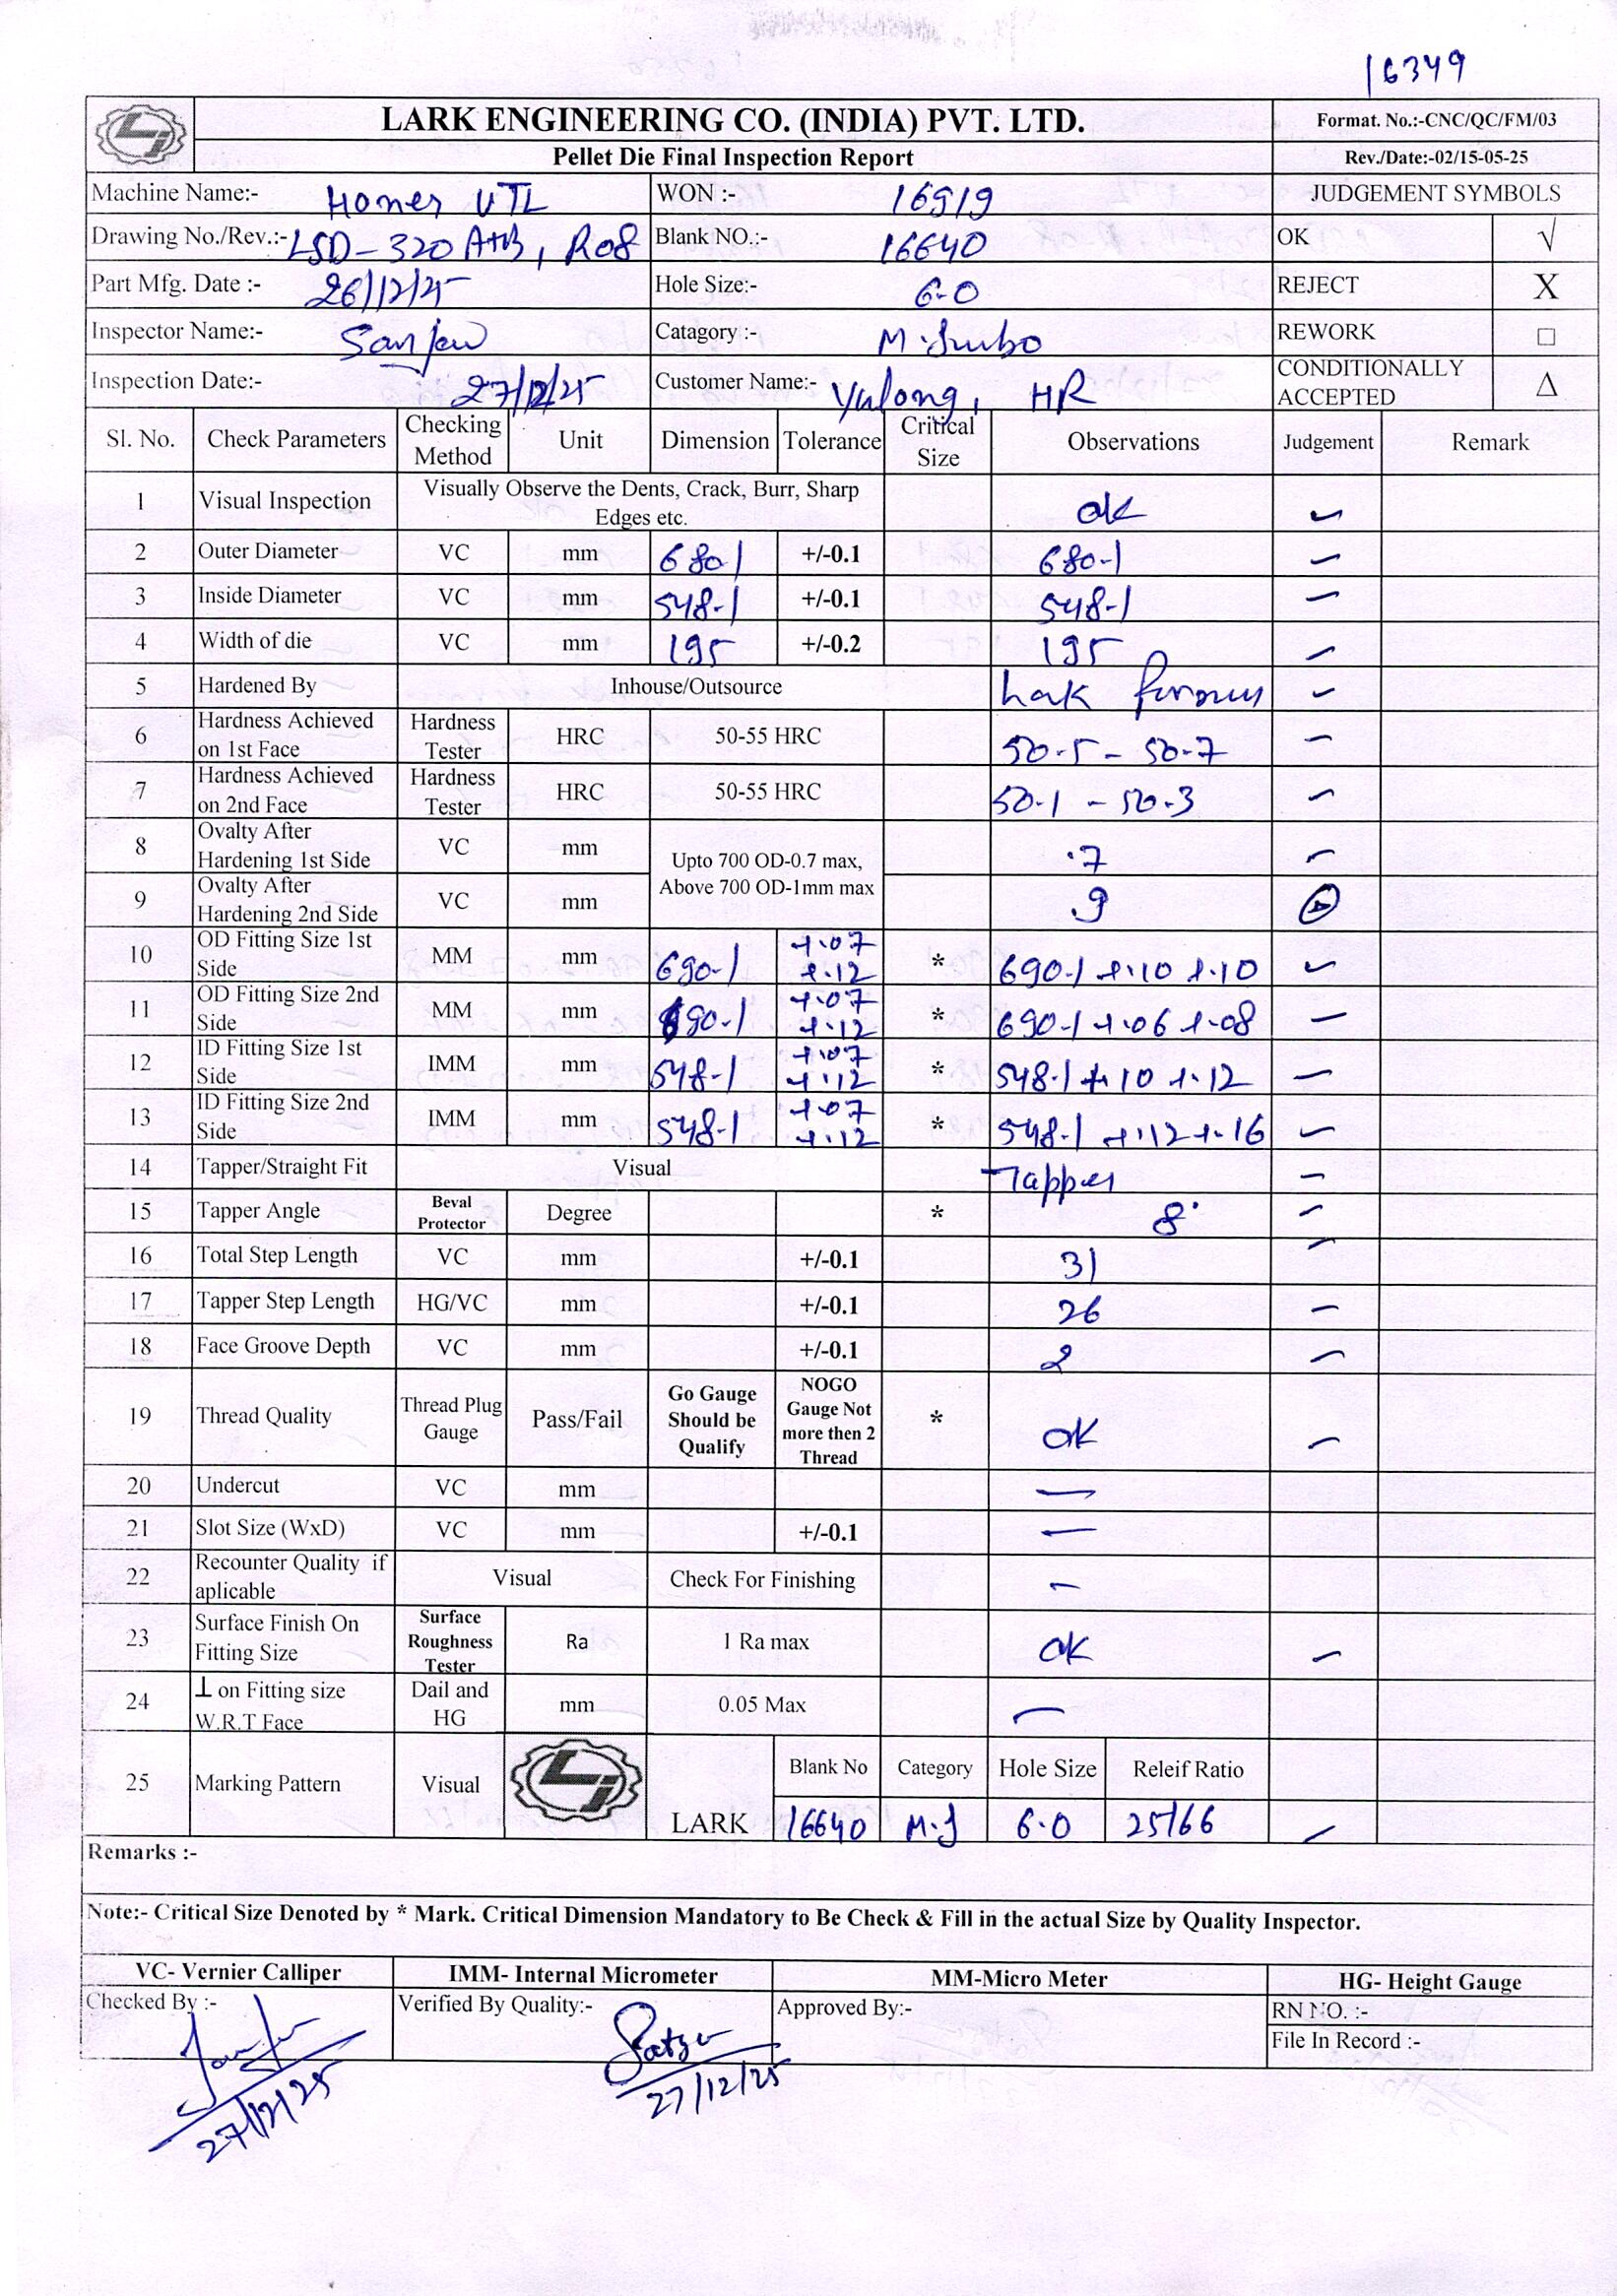 16349
LARK ENGINEERING CO. (INDIA) PVT. LTD.
Format. No.:-CNC/QC/FM/03
Pellet Die Final Inspection Report
Rev./Date:-02/15-05-25
Machine Name:- Homer VTL WON :- 16519 JUDGEMENT SYMBOLS
Drawing No./Rev.:- LSD-320 A+B, R08 Blank NO.:- 16640 OK √
Part Mfg. Date :- 26/12/25 Hole Size:- 6.0 REJECT X
Inspector Name:- Sanjeev Catagory :- M.Jumbo REWORK □
Inspection Date:- 27/12/25 Customer Name:- Yulong, HR CONDITIONALLY ACCEPTED Δ
Sl. No. Check Parameters Checking Method Unit Dimension Tolerance Critical Size Observations Judgement Remark
1 Visual Inspection Visually Observe the Dents, Crack, Burr, Sharp Edges etc. ok ✓
2 Outer Diameter VC mm 680.1 +/-0.1 680-1 ✓
3 Inside Diameter VC mm 548-1 +/-0.1 548-1 ✓
4 Width of die VC mm 195 +/-0.2 195 ✓
5 Hardened By Inhouse/Outsource ✓
6 Hardness Achieved on 1st Face Hardness Tester HRC 50-55 HRC 50.5 - 50.7 ✓
7 Hardness Achieved on 2nd Face Hardness Tester HRC 50-55 HRC 50.1 - 50.3 ✓
8 Ovalty After Hardening 1st Side VC mm Upto 700 OD-0.7 max, Above 700 OD-1mm max .7 ✓
9 Ovalty After Hardening 2nd Side VC mm .9 Δ
10 OD Fitting Size 1st Side MM mm 690-1 +.07 +.12 * 690-1 +.10 +.10 ✓
11 OD Fitting Size 2nd Side MM mm 690-1 +.07 +.12 * 690-1 +.06 +.08 ✓
12 ID Fitting Size 1st Side IMM mm 548-1 +.07 +.12 * 548-1 +.10 +.12 ✓
13 ID Fitting Size 2nd Side IMM mm 548-1 +.07 +.12 * 548-1 +.12 +.16 ✓
14 Tapper/Straight Fit Visual Tapper ✓
15 Tapper Angle Beval Protector Degree * 8° ✓
16 Total Step Length VC mm +/-0.1 31 ✓
17 Tapper Step Length HG/VC mm +/-0.1 26 ✓
18 Face Groove Depth VC mm +/-0.1 2 ✓
19 Thread Quality Thread Plug Gauge Pass/Fail Go Gauge Should be Qualify NOGO Gauge Not more then 2 Thread * ok ✓
20 Undercut VC mm —
21 Slot Size (WxD) VC mm +/-0.1 —
22 Recounter Quality if aplicable Visual Check For Finishing —
23 Surface Finish On Fitting Size Surface Roughness Tester Ra 1 Ra max ok ✓
24 ⊥ on Fitting size W.R.T Face Dail and HG mm 0.05 Max —
25 Marking Pattern Visual LARK Blank No Category Hole Size Releif Ratio
16640 M.J 6.0 25/66 ✓
Remarks :-
Note:- Critical Size Denoted by * Mark. Critical Dimension Mandatory to Be Check & Fill in the actual Size by Quality Inspector.
VC- Vernier Calliper IMM- Internal Micrometer MM-Micro Meter HG- Height Gauge
Checked By :- Verified By Quality:- Approved By:- RN NO. :-
File In Record :-
27/12/25 27/12/25